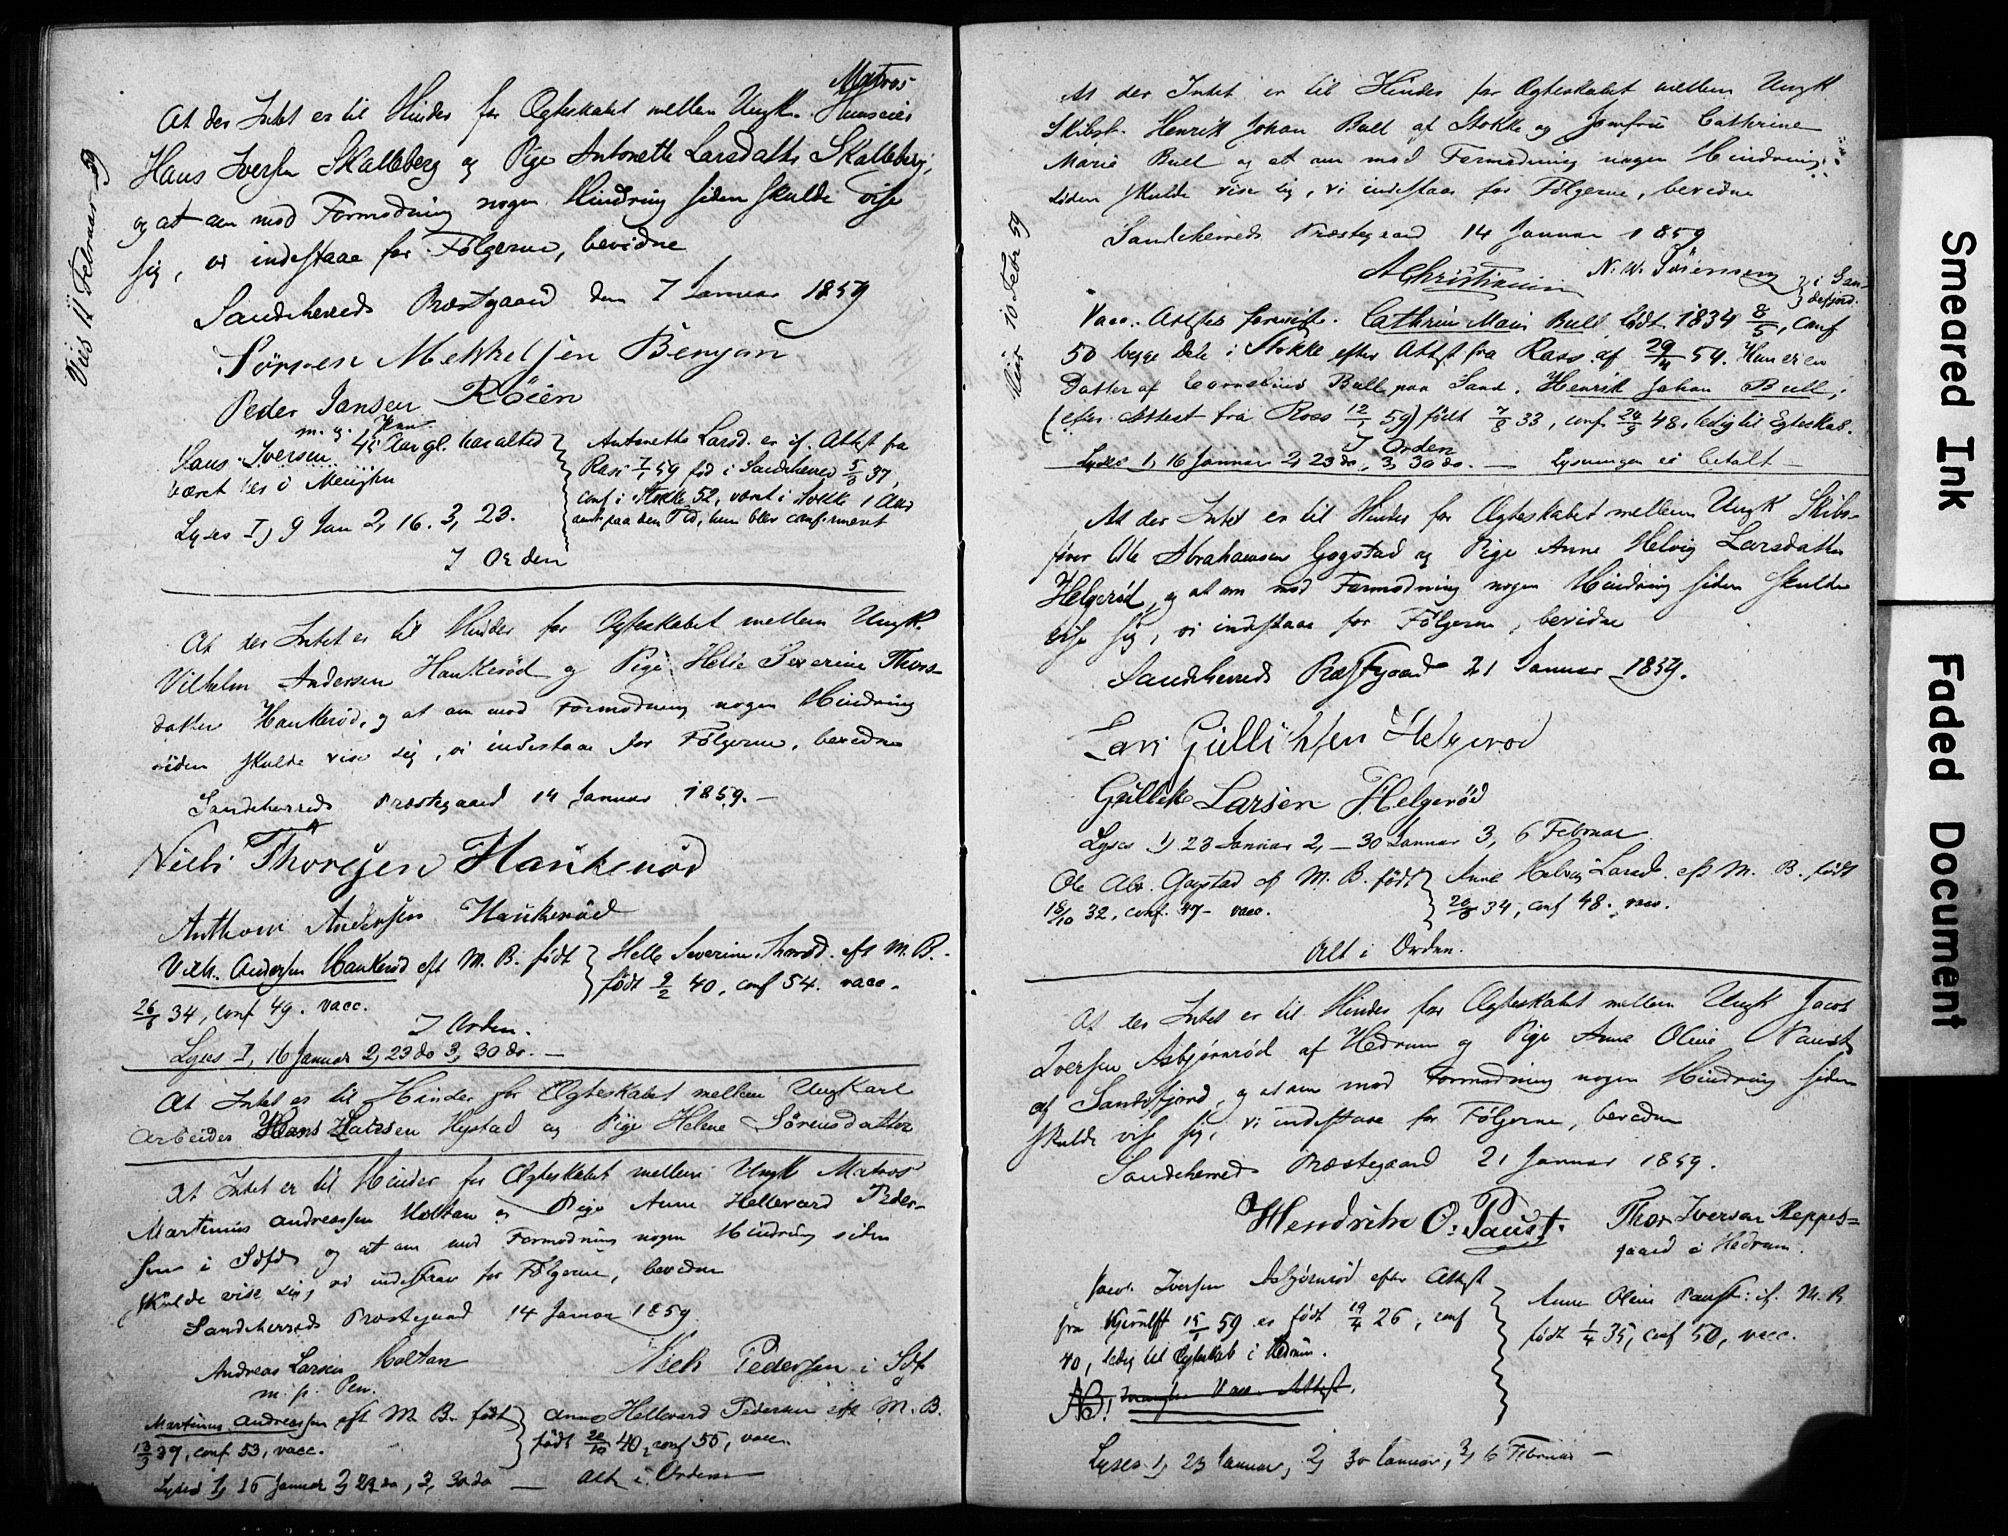 Matros
At der Intet er til Hinder for Ægteskabet mellem Ungk. Huuseier
Hans Iversen Skalleberg og Pige Antonette Larsdatter Skalleberg,
og at om mod Formodning nogen Hindring siden skulde vise
sig, vi indestaae for Følgerne, bevidne
Sandeherreds Præstgaard den 7 Januar 1859
Sørren Mekkelsen Bergan
Peder Jansen Røien
m. p. Pen
Hans Iversen 45 Aar gl. har altid
været her i Menigh
Lyses I, 9 Jan 2, 16. 3, 23.
Antonette Larsd. er if. Attest fra
Rass 7/1 59 fød i Sandeherred 5/3 37,
conf i Stokke 52, været i Stokke 1 Aar
paa den Tid, hun blev confirmeret
I Orden
Viet 11 Februar 59
At der Intet er til Hinder for Ægteskabet mellem Ungk.
Vilhelm Andersen Haukerød og Pige Helle Severine Thors-
datter Haukerød, og at om mod Formodning nogen Hindring
siden skulde vise sig, vi indestaae for Følgerne, bevidne
Sandeherreds Præstegaard 14 Januar 1859.-
Niels Thoresen Haukerød
Anthoni Andersen Haukerød
Vilh. Andersen Haukerød eft M. B. født
26/8 34, conf 49. vacc.
Helle Severine Thorsd. eft M. B.
født 9/2 40, conf 54. vacc.
I Orden.
Lyses I, 16 Januar 2, 23 do 3, 30 do. -
At Intet er til Hinder for Ægteskabet mellem Ungkarl
Arbeider Hans Larssen Hystad og Pige Helene Sörensdatter
At Intet er til Hinder for Ægteskabet mellem Ungk Matros
Martinius Andreassen Holtan og Pige Anne Hellevard Peder-
sen i Sdfd og at om mod Formodning nogen Hindring siden
skulde vise sig, vi indestaae for Følgerne, bevidne
Sandeherreds Præstegaard 14 Januar 1859.
Andreas Larsen Holtan
m. p. Pen.
Niels Pedersen i Sdf
Martinius Andreassen eft M B. født
13/3 39, conf 53, vacc.
Anne Hellevard Pedersen eft M. B.
født 20/10 40, conf 55, vacc.
Lyses 1, 16 Januar 2, 23 do, 3, 30 do - Alt i Orden
At der Intet er til Hinder for Ægteskabet mellem Ungk
Skibst. Henrik Johan Bull af Stokke og Jomfru Cathrine
Marie Bull og at om mod Formodning nogen Hindring
siden skulde vise sig, vi indestaae for Følgerne, bevidne
Sandeherreds Præstegaard 14 Januar 1859
AChristiansen N. W. Sørensen i San-
defjord.
Viet 10 Febr 59
Vacc. Attester forevist. Cathrine Marie Bull født 1834 8/5, conf
50 begge Dele i Stokke efter Attest fra Rass af 29/4 54. Hun er en
Datter af Cornelius Bull paa Sand. Henrik Johan Bull,
(efter Attest fra Rass 12/1 59) født 7/8 33, conf. 24/9 48, ledig til Egteskab.
I Orden
Lyses 1, 16 Januar 2, 23 do, 3, 30 do. - Lysningen ei betalt -
At der Intet er til Hinder for Ægteskabet mellem Ungk Skibs-
fører Ole Abrahamsen Gogstad og Pige Anne Helvig Larsdatter
Helgerød, og at om mod Formodning nogen Hindring siden skulde
vise sig, vi indestaae for Følgerne, bevidne
Sandeherreds Præstgaard 21 Januar 1859.
Lars Gullichsen Helgerød
Gullik Larsen Helgerød
Lyses 1, 23 Januar 2, - 30 Januar 3, 6 Februar
Ole Abr. Gogstad eft M. B. født
18/10 32, conf. 47 - vacc.
Anne Helvig Larsd. eft M. B. født
20/8 34, conf 48. vacc.
Alt i Orden.
At der Intet er til Hinder for Ægteskabet mellem Ungk Jacob
Iversen Asbjørnrød af Hedrum og Pige Anne Oline Paust
af Sandefjord, og at om mod Formodning nogen Hindring siden
skulde vise sig, vi indestaae for Følgerne, bevidne
Sandeherreds Præstegaard 21 Januar 1859.
Hendrich O. Paust.
Thor Iversen Reppes-
gaard i Hedrum.
Jacob Iversen Asbjørnrød efter Attest
fra Kjerulff 15/1 59 er født 19/4 26, conf
40, ledig til Egteskab i Hedrum.
NB! mangler Vacc. Attest.
Anne Oline Paust: if. M. B
født 1/4 35, conf 50, vacc.
Lyses 1, 23 Januar, 2, 30 Januar, 3, 6 Februar -
Smeared Ink
Faded Document